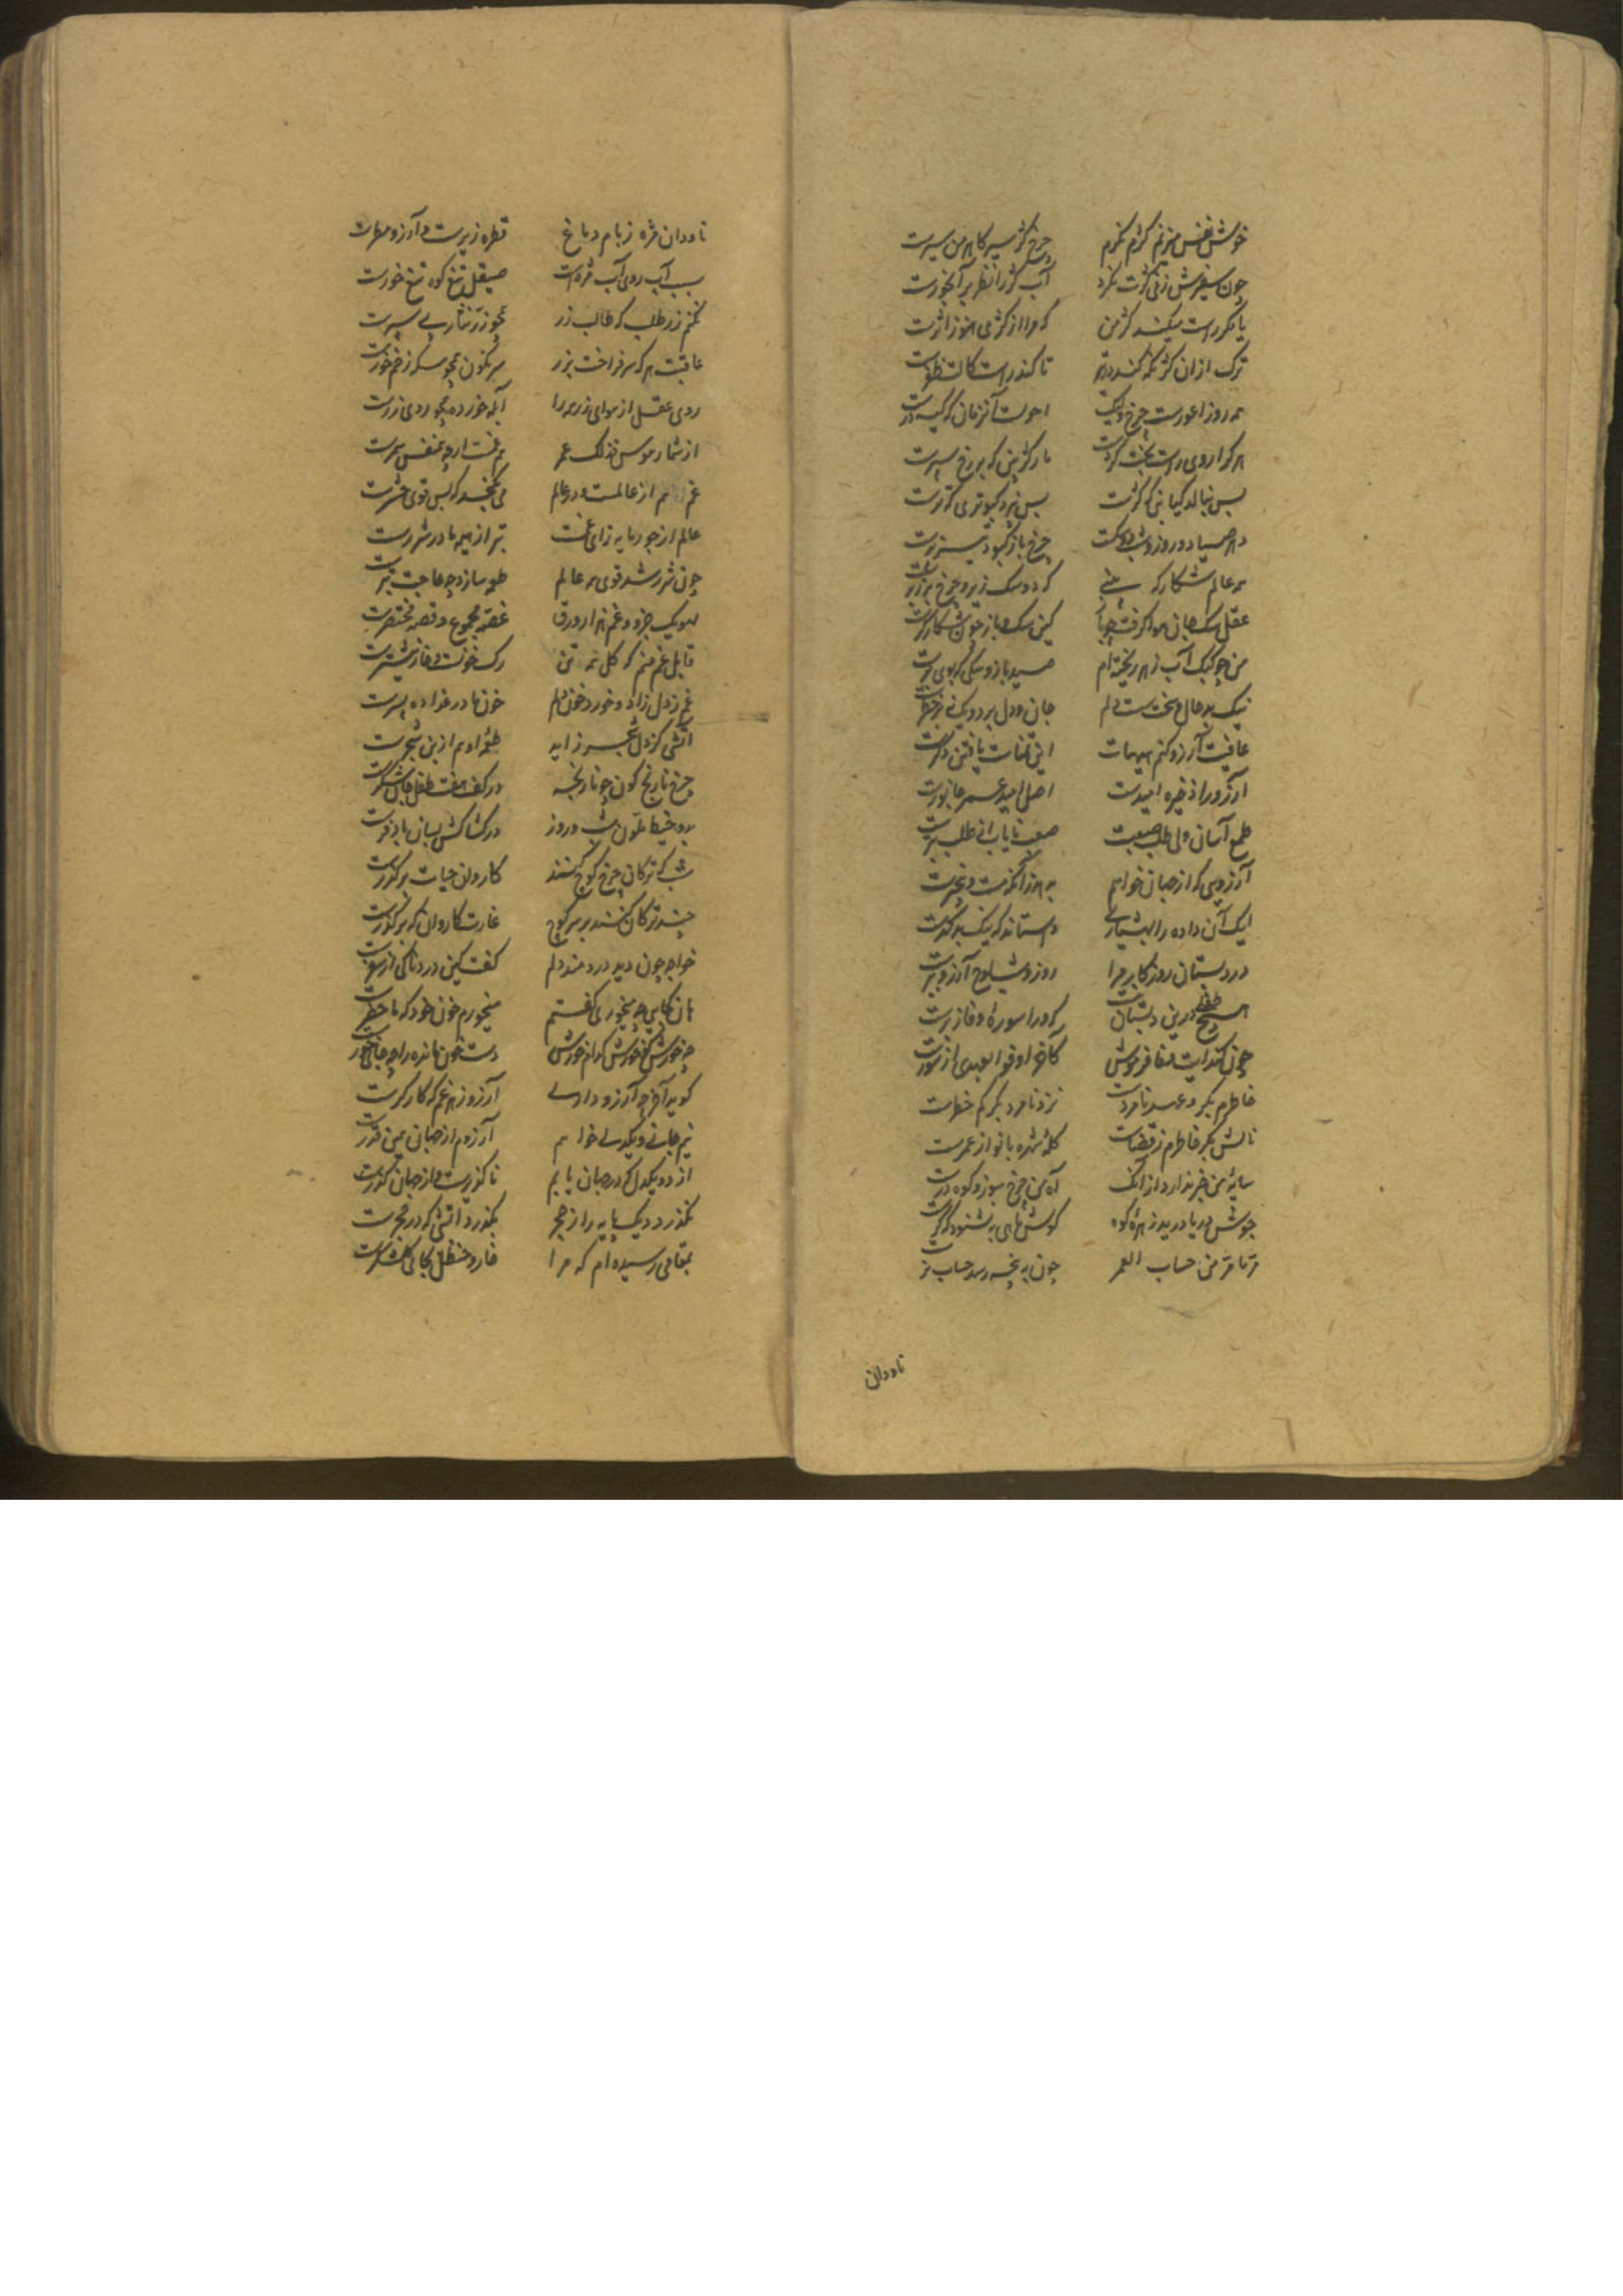 خوش نفس میزنم کژم نکرم چرخ کژ سیر کاهرمن سیرت
چون صفیرش زنی کژت نکرد آب کژ را نظر بر آبخورت
یا مکر راست میکند کژ من که مرا از کژی هنوز اثرت
ترک از ان کژ نکه کند در تیر تا کند راست
همه روز اعورست چرخ ولیک احولست آنزمان که کینه ورت
هر کرا روی راست بخت کژست مار کژ بین که بر رخ سپرت
بس نبالد کیابنی که کژست بس نپرد کبوتری که ترت
دهر صیاد و روز و شب دو سکست چرخ باز کبود تیز پرت
همه عالم شکارکه بینی که دو سک زیر و چرخ بر زبرت
عقل سک جان هوا گرفت چو باز کین سک و باز چون شکار گرت
من چو کبک آب زهره ریخته ام صید باز و سکی که بوی برت
نیک بد حال و سخت سست دلم جان و دل بر دو یکی بر خطرت
عافیت آرزو کنم هیهات این تمنات یافتن دگرت
آرزو را ذخیره امیدست اصل امید عمر جانورت
طمع آسان ولی طلب صعبست صعب نایابی از طلب بترت
آرزویی که از جهان خواهم بدهد زانکه مست و بیخبرت
لیک آن داده را بهشیاری واستاند که نیک بد گهرت
در دبستان روزگار مرا روز و شب لوح آرزو ببرت
هیچ طفلی درین دبستان نیست که ورا سوره وفا ز برت
چون کتد ایت وفا فرموش کاخر اوفوا بعهدی از سورت
خاطرم بکر و دهر نامردست نزد نامرد بکر کم خطرت
نالش بکر خاطرم ز قضاست کله شهربانو از عمرت
سایه من خبر ندارد از آنک آه من چرخ سوز و کوه درت
جوش دریا دریده زهره کوه گوش ماهی نشنود که کرت
مرتا مرا من حساب العمر چون به پنجه رسد حساب مر
ناودان
ناودان مژه ز بام دماغ قطره ریزست و آرزو مطرت
سبب آب روی آب مژه است صیقل تیغ کوه تیغ خورت
نکنم زر طلب که طالب زر همچو زر نثار پی سپرت
عاقبت هر که سرفراخت بزر سرنگون همچو سکه زخم خورت
روی عقل از هوای زر همه را آبله خورده همچو روی زرت
از شمار نفوس فذلک عمر هم غمست ار چه غم نفس شمرت
غم هم از عالمست و در عالم می نگنجد که بس قوی حشرت
عالم از جور مایه زای غمست بتر از هیمه مادر شررت
چون شرر شد قوی همه عالم طعمه سازد چه حاجت تبرت
لهو یک جزو و غم هزار ورق غصه مجموع و قصه مختصرت
قابل غم منم که کل نه تن رک خونست و خار نیشترت
غم ز دل زاد و خورد خون دلم خون مادر غذا ده پسرت
آتشی کز دل شجر زاید طعمه او هم از بن شجرت
چرخ نارنج گون چو بازیچه در کف هفت طفل جان شکرت
بدو خیط ملون شب و روز در کشاکش بسان بادفرت
شب که ترکان چرخ کوچ کنند کاروان حیات بر گذرت
چند ترکان کنند بر سر کوچ غارت کاروان که بر گذرت
خواجه چون دید دردمند دلم گفت کین دردناکی از سفرت
هان کجایی چه میخوری گفتم میخورم خون خود که ما حضرت
چه خورش کو خورش کدام خورش دست خون مانده را چه جای خورت
گوید آخر چه آرزو داری آرزو زهر غم که کارگرت
نیم جانی و یکدلی خواهم آرزوم از جهان همین قدرت
از دو یکدل در جهان یابم ناگزیرست و از جهان گذرت
نگذرد دیگ پایه را ز حجر نگذرد آتشی که در حجرت
بمقامی رسیده ام که مرا خار و حنظل بجای گلشکرت